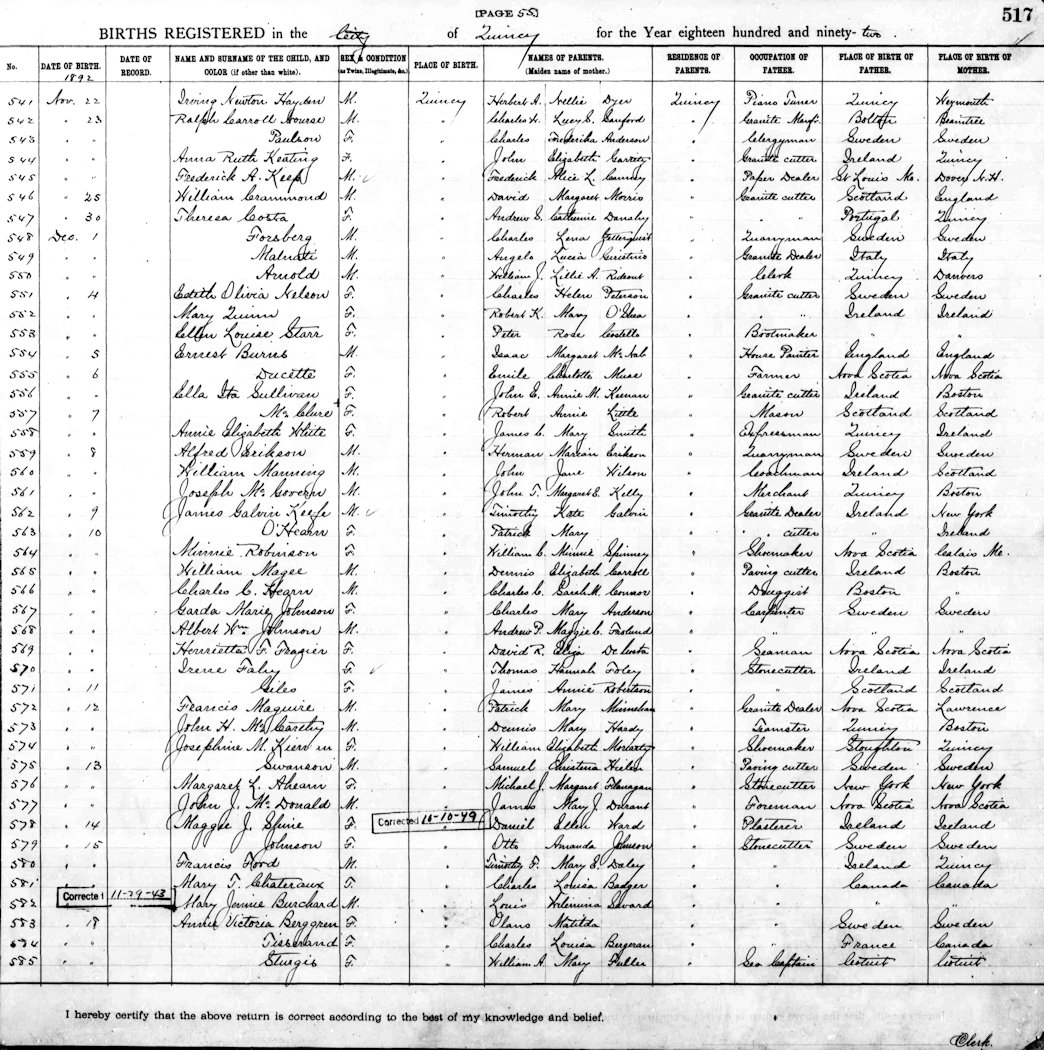 [PAGE 55]
517
BIRTHS REGISTERED in the City of Quincy for the Year eighteen hundred and ninety-two.
No. DATE OF BIRTH. DATE OF RECORD. NAME AND SURNAME OF THE CHILD, AND COLOR (if other than white). SEX & CONDITION (as Twins, Illegitimate, &c.) PLACE OF BIRTH. NAMES OF PARENTS. (Maiden name of mother.) RESIDENCE OF PARENTS. OCCUPATION OF FATHER. PLACE OF BIRTH OF FATHER. PLACE OF BIRTH OF MOTHER.
1892
541 Nov. 22 Irving Newton Hayden M. Quincy Herbert A. Nellie Dyer Quincy Piano Tuner Quincy Weymouth
542 " 23 Ralph Carroll Nourse M. " Charles H. Lucy E. Sanford " Granite Manf. Bolton Braintree
543 " " Paulson M. " Charles Frederika Anderson " Clergyman Sweden Sweden
544 " " Anna Ruth Keating F. " John Elizabeth Garrety " Granite cutter Ireland Quincy
545 " " Frederick A. Keep M. " Frederick Alice L. " Paper Dealer St Louis Mo. Dover N.H.
546 " 25 William Crammond M. " David Margaret Morris " Granite cutter Scotland England
547 " 30 Theresa Costa F. " Andrew S. Catherine " " " Portugal Quincy
548 Dec. 1 Forsberg M. " Charles Lena " Quarryman Sweden Sweden
549 " " Malnati M. " Angelo Lucia " Granite Dealer Italy Italy
550 " " Arnold M. " William J. Lillie A. Rideout " Clerk Quincy Danvers
551 " 4 Edith Olivia Nelson F. " Charles Helen Peterson " Granite cutter Sweden Sweden
552 " " Mary Quinn F. " Robert K. Mary O'Shea " " " Ireland Ireland
553 " " Ellen Louise Starr F. " Peter Rose Costello " Bootmaker " "
554 " 5 Ernest Burns M. " Isaac Margaret McNab " House Painter England England
555 " 6 Ducette F. " Emile Charlotte Muse " Farmer Nova Scotia Nova Scotia
556 " " Ella Ita Sullivan F. " John E. Annie M. Keenan " Granite cutter Ireland Boston
557 " 7 McClure F. " Robert Annie Little " Mason Scotland Scotland
558 " " Annie Elizabeth White F. " James C. Mary Smith " Expressman Quincy Ireland
559 " 8 Alfred Erikson M. " Herman Erikson " Quarryman Sweden Sweden
560 " " William Manning M. " John Jane Wilson " Coachman Ireland Scotland
561 " " Joseph McGovern M. " John T. Margaret E. Kelly " Merchant Quincy Boston
562 " 9 James Galvin Keefe M. " Timothy Kate Galvin " Granite Dealer Ireland New York
563 " 10 O'Hearn F. " Patrick Mary " " cutter " Ireland
564 " " Minnie Robinson F. " William C. Minnie Spinney " Shoemaker Nova Scotia Calais Me.
565 " " William Magee M. " Dennis Elizabeth Carroll " Paving cutter Ireland Boston
566 " " Charles C. Hearn M. " Charles C. Sarah M. Connor " Druggist Boston "
567 " " Garda Marie Johnson F. " Charles Mary Anderson " Carpenter Sweden Sweden
568 " " Albert Wm Johnson M. " Andrew P. Maggie C. " " " "
569 " " Henrietta F. Frazier F. " David R. Eliza " Seaman Nova Scotia Nova Scotia
570 " " Irene Faley F. " Thomas Hannah Foley " Stonecutter Ireland Ireland
571 " 11 Giles F. " James Annie Robertson " " Scotland Scotland
572 " 12 Francis Maguire M. " Patrick Mary " Granite Dealer Nova Scotia Lawrence
573 " " John H. McCarthy M. " Dennis Mary Hardy " Teamster Quincy Boston
574 " " Josephine M. F. " William Elizabeth Moriarty " Shoemaker Stoughton Quincy
575 " 13 Swanson M. " Samuel Christina " Paving cutter Sweden Sweden
576 " " Margaret L. Ahearn F. " Michael J. Margaret Flanagan " Stonecutter New York New York
577 " " John J. McDonald M. " James Mary J. Durant " Foreman Nova Scotia Nova Scotia
578 " 14 Maggie J. F. Corrected 10-10-49 Daniel Ellen Ward " Plasterer Ireland Ireland
579 " 15 Johnson F. " Otto Amanda Johnson " Stonecutter Sweden Sweden
580 " " Francis Ford M. " Timothy F. Mary E. Daley " " Ireland Quincy
581 " " Mary T. Chateraux F. " Charles Louisa Badger " " Canada Canada
582 Corrected 11-29-43 Mary Jennie Burchard M. " Louis Savard " " " "
583 " 18 Annie Victoria Berggren F. " Olans Matilda " Sweden Sweden
584 " " Tisserand F. " Charles Louisa Bergeran " " France Canada
585 " " Sturgis F. " William A. Mary Fuller " Sea Captain Cotuit Cotuit
I hereby certify that the above return is correct according to the best of my knowledge and belief.
Clerk.